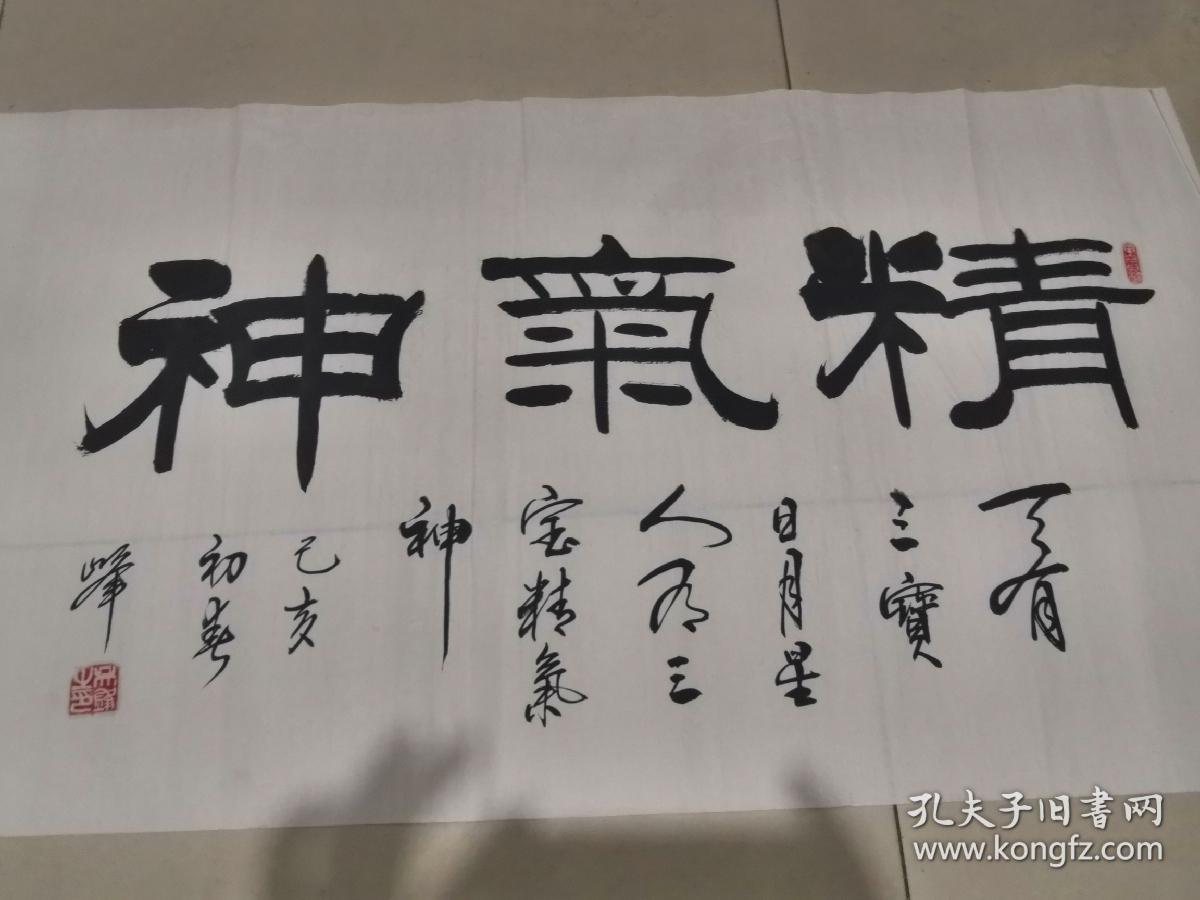 精氣神
天有
三寶
日月星
人有三
宝精氣
神
己亥
初春
峰
孔夫子旧书网
www.kongfz.com